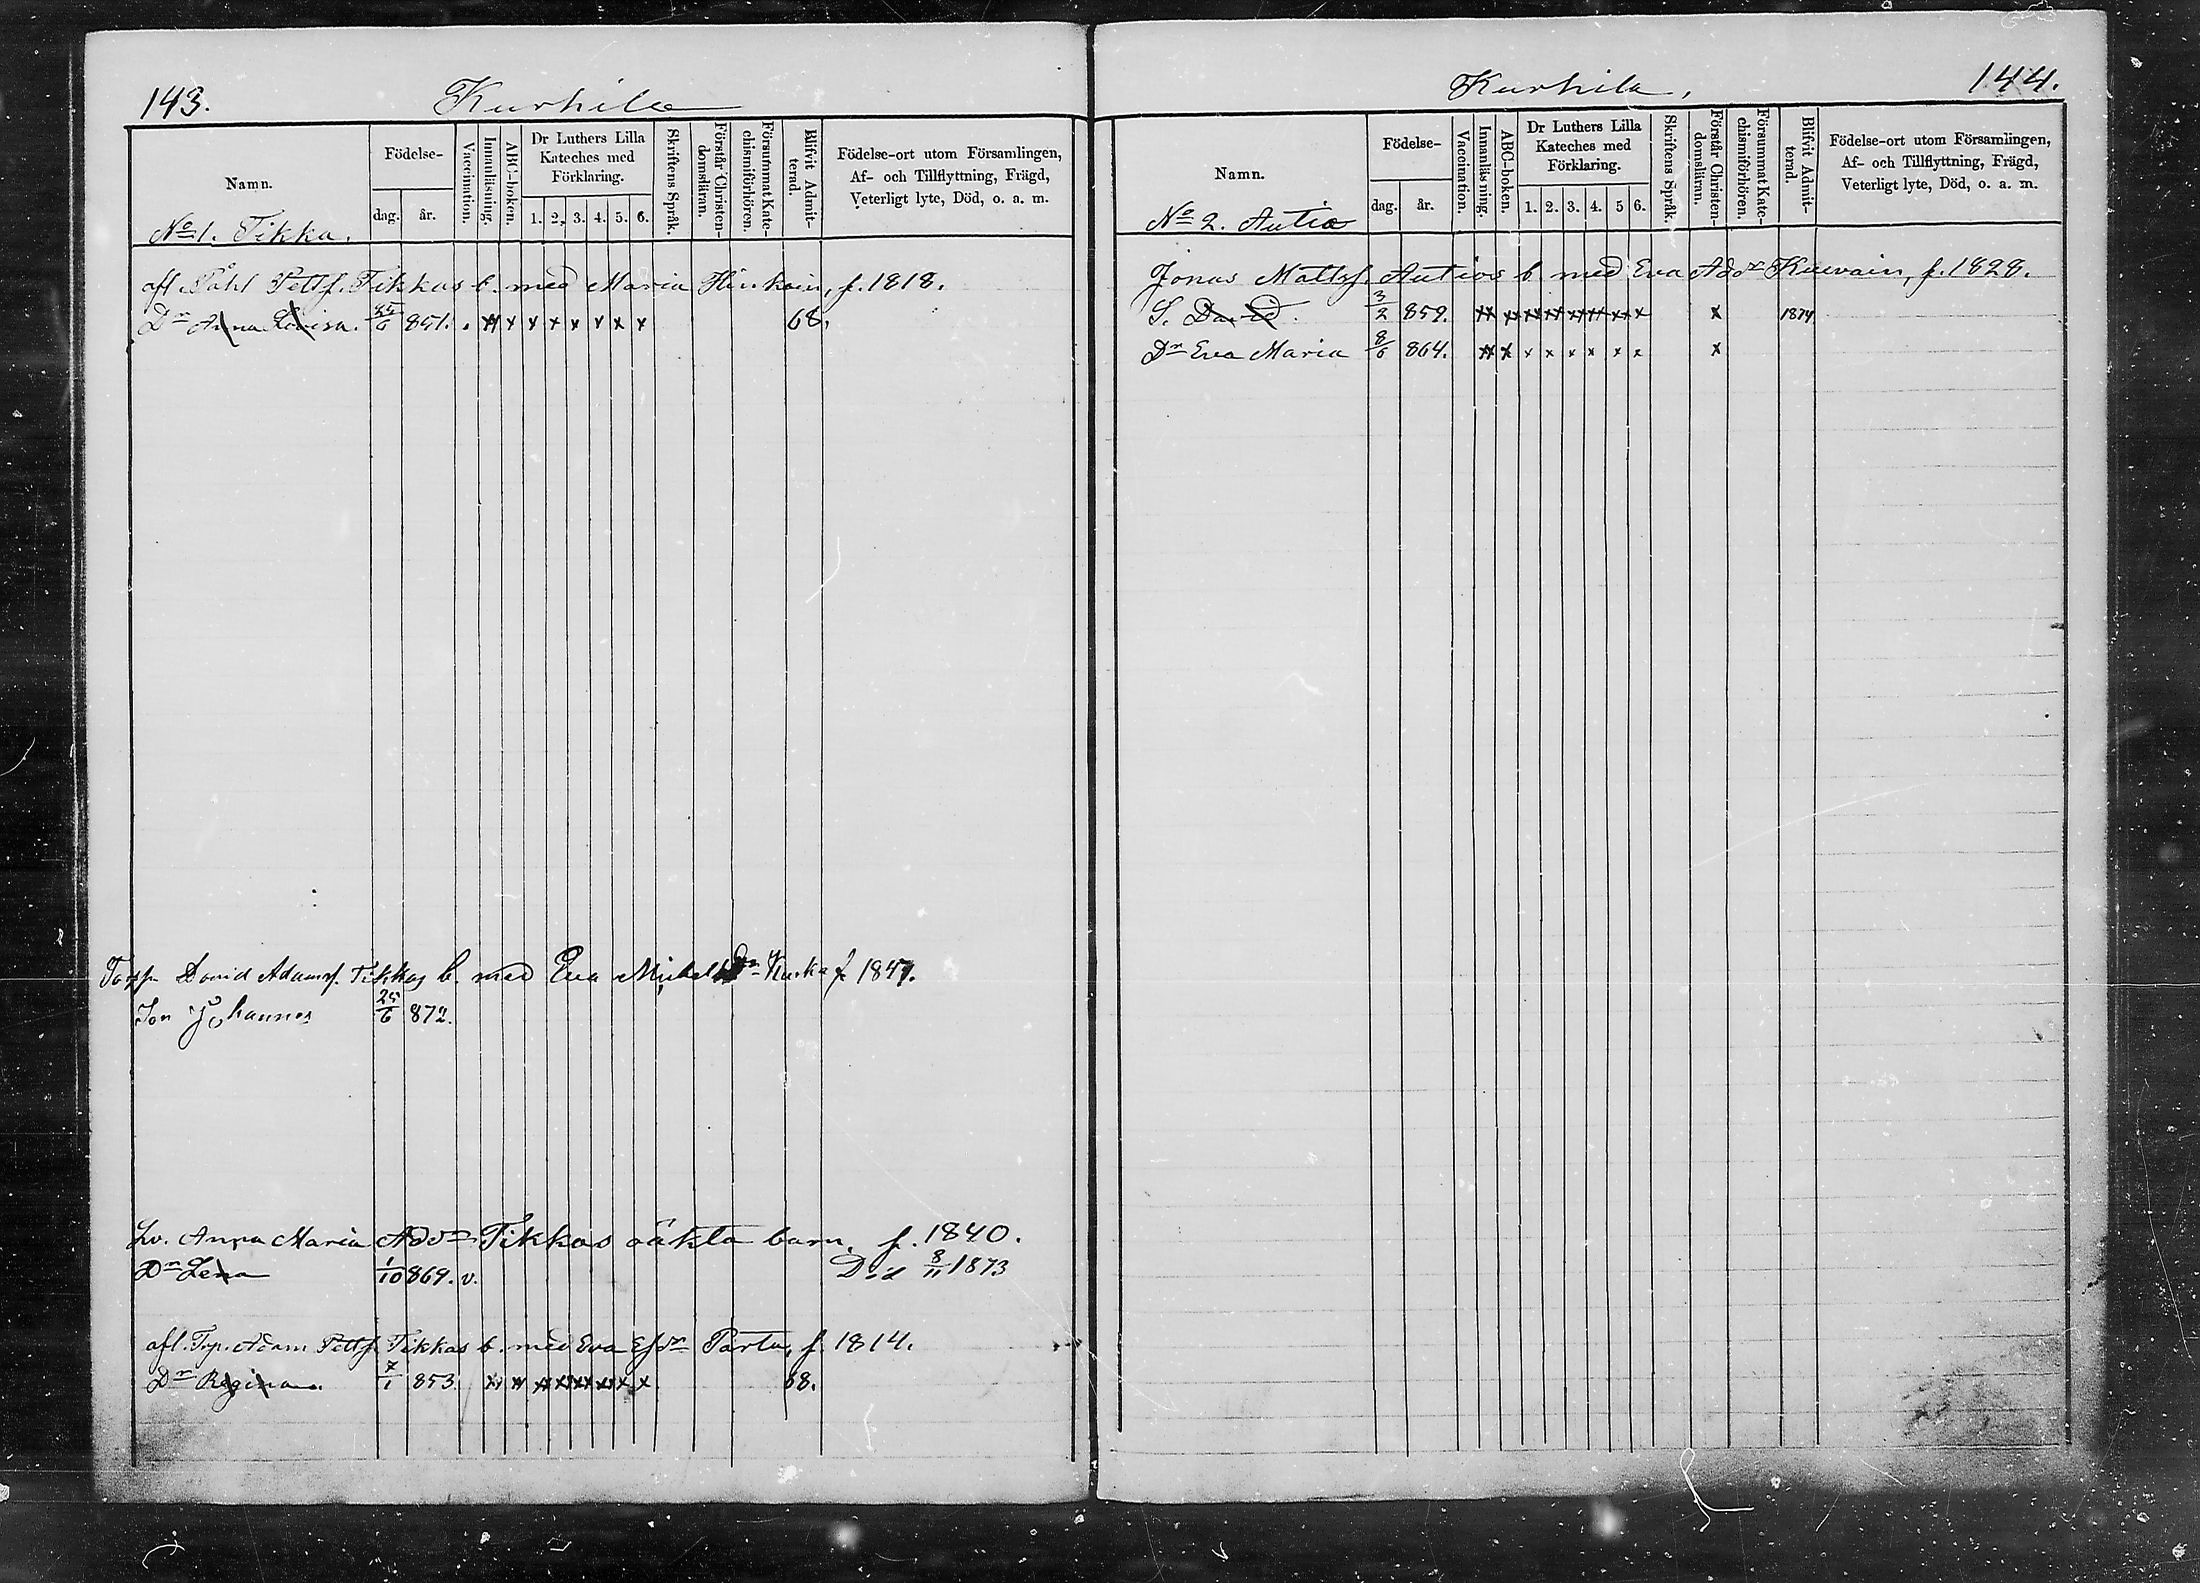 143.
Kurhila
Namn.
Födelse-
dag.
år.
Vaccination.
Innanläsning.
ABC-boken.
Dr Luthers Lilla Kateches med Förklaring.
1. 2. 3. 4. 5. 6.
Skriftens Språk.
Förstår Christen-domsläran.
Försummat Kate-chismiförhören.
Blifvit Admit-terad.
Födelse-ort utom Församlingen,
Af- och Tillflyttning, Frägd,
Veterligt lyte, Död, o. a. m.
No 1. Tikka.
afl. Påhl Pettsf. Tikkas b. med Maria Hinkain, f. 1818.
Dr Anna Lovisa. 25/6 851. x x x x x x x x 68.
Torpp. David Adamsf. Tikkas b. med Eva Mickelsdr Kurka f 1847.
Son Johannes 25/6 872.
Lv. Anna Maria Addr Tikkas oäkta barn. f. 1840.
Dr Lena 1/10 869. v. Död 8/11 1873
afl. Trp. Adam Pettsf. Tikkas b. med Eva Esdr Partu, f. 1814.
Dr Regina. 7/1 853. x x x x x x x x 68.
Kurhila.
144.
Namn.
Födelse-
dag.
år.
Vaccination.
Innanläsning.
ABC-boken.
Dr Luthers Lilla Kateches med Förklaring.
1. 2. 3. 4. 5 6.
Skriftens Språk.
Förstår Christen-domsläran.
Försummat Kate-chismiförhören.
Blifvit Admit-terad.
Födelse-ort utom Församlingen,
Af- och Tillflyttning, Frägd,
Veterligt lyte, Död, o. a. m.
No 2. Autio
Jonas Mattsf. Autios b. med Eva Addr f. 1828.
S. David. 3/2 859. x x x x x x x x x 1874
Dr Eva Maria 8/6 864. x x x x x x x x x